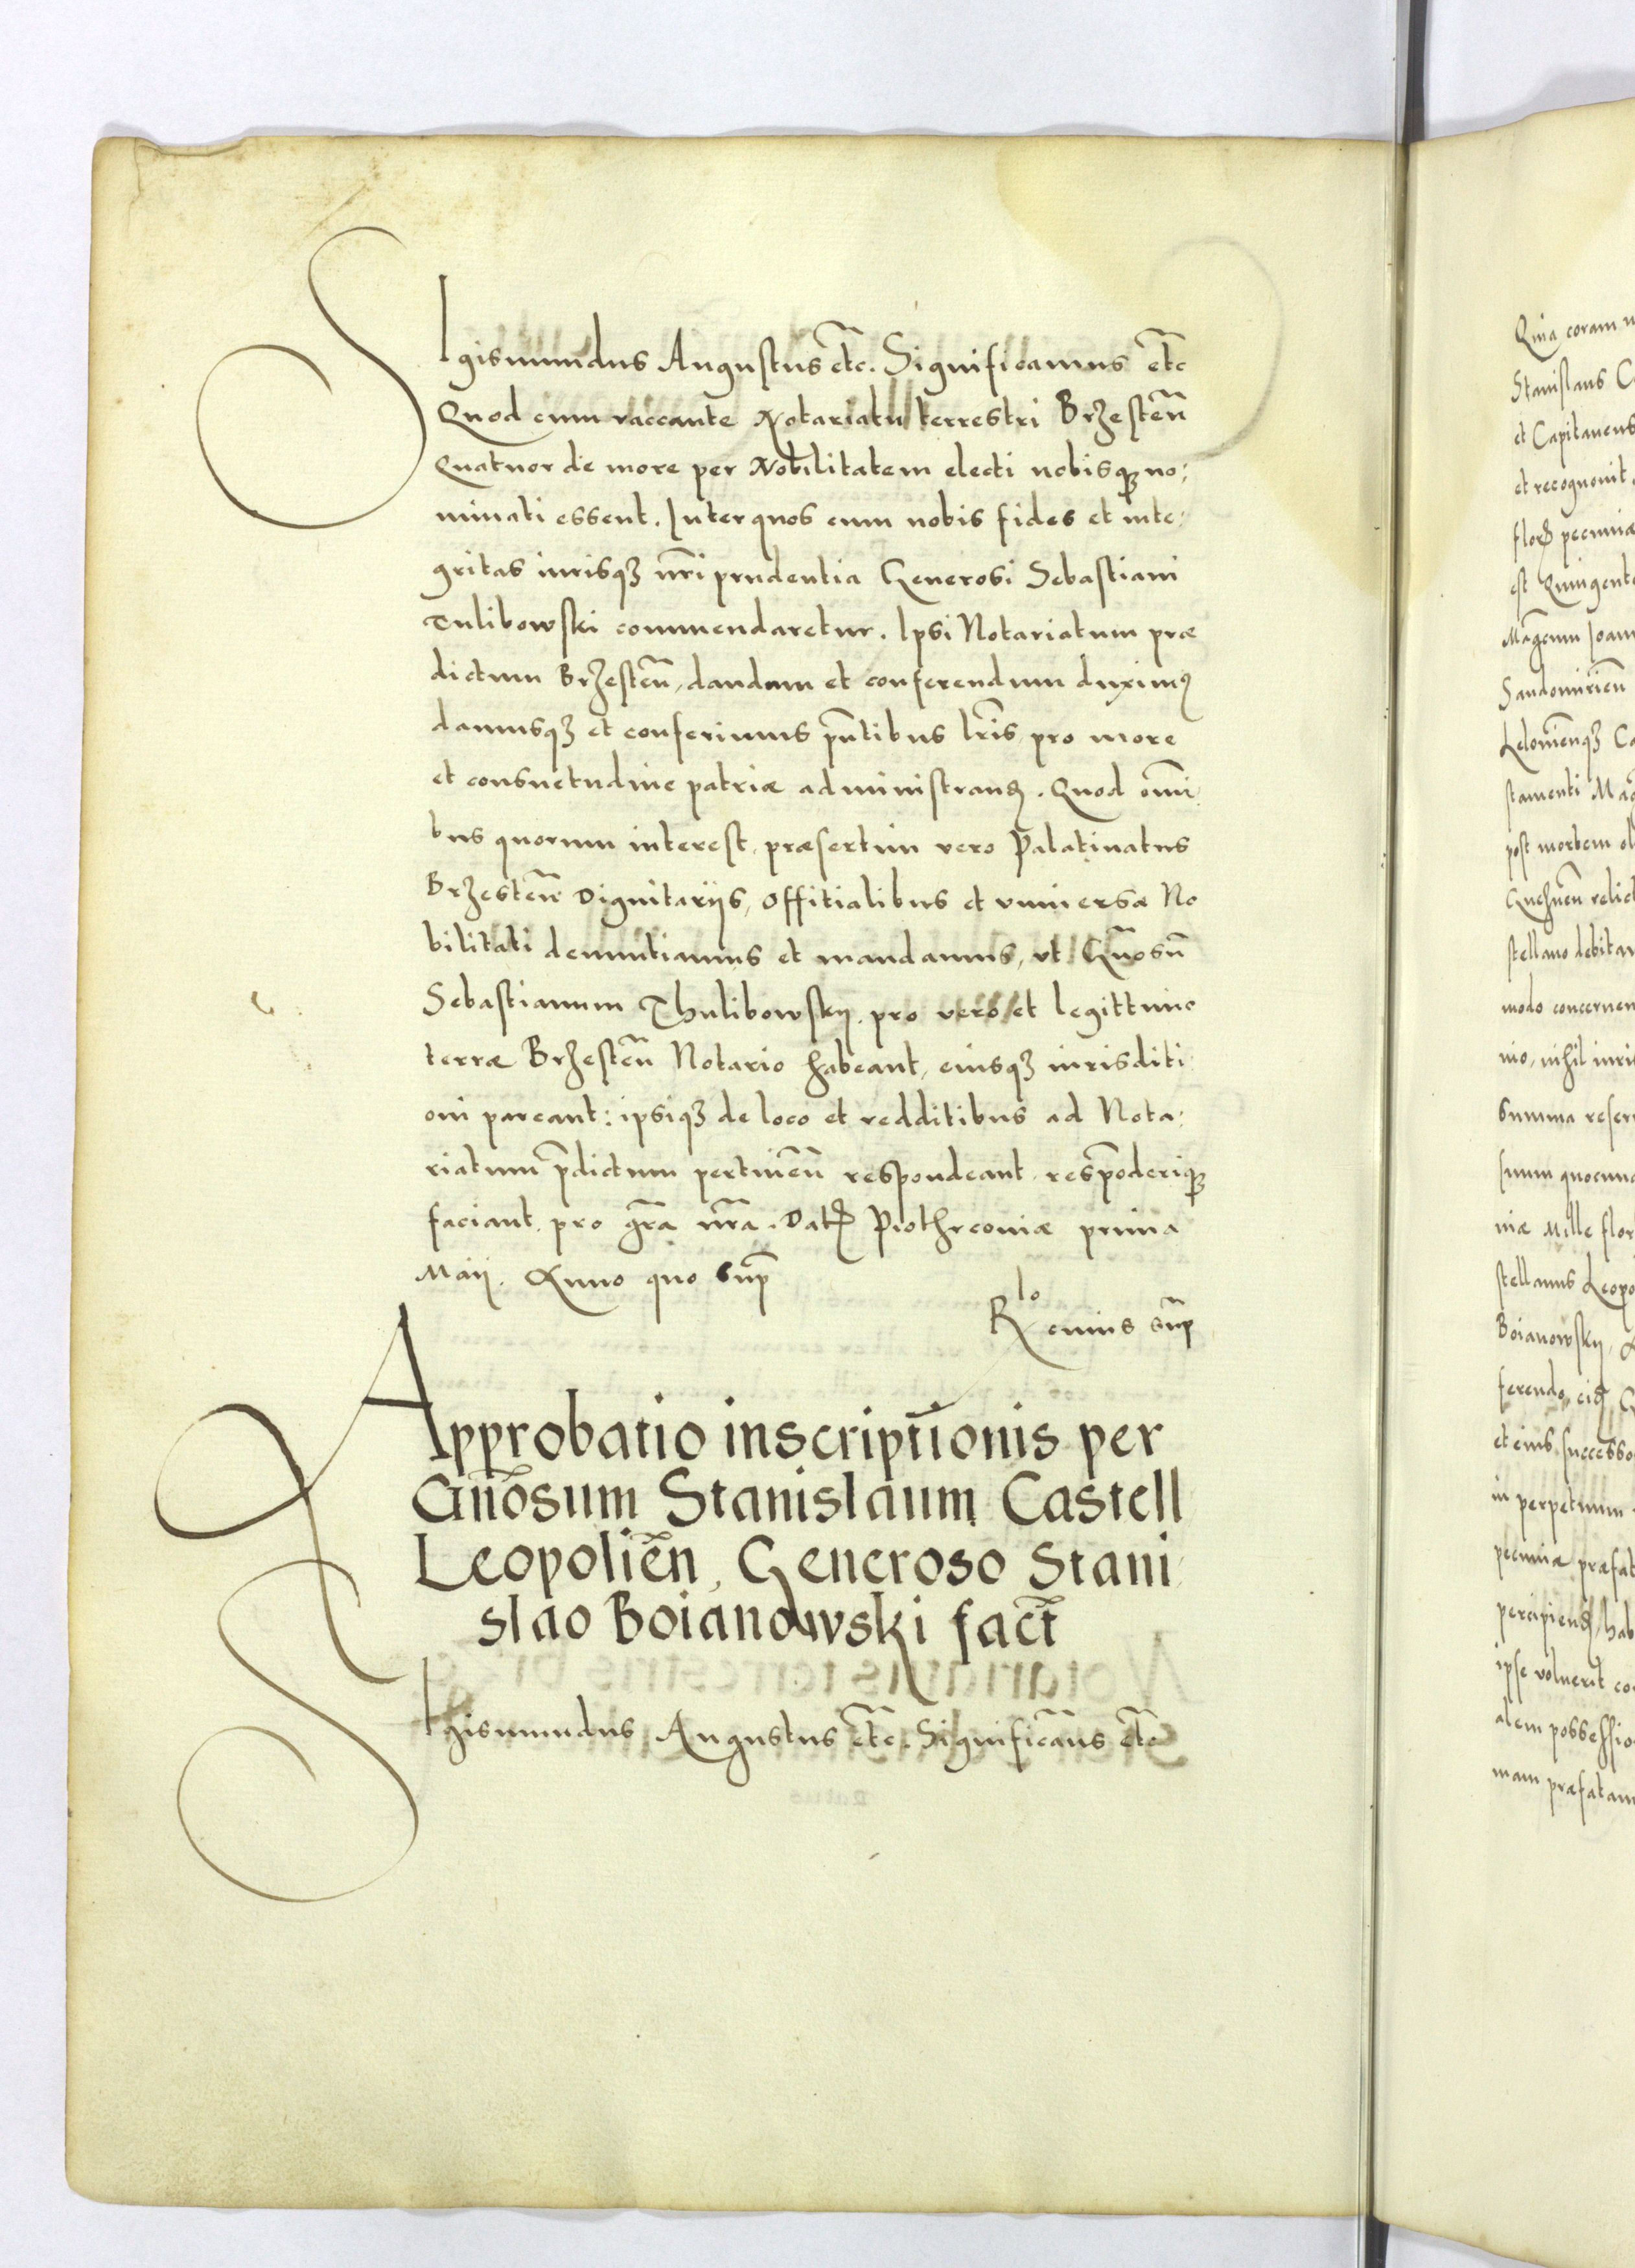 Sigismundus Augustus etc̄. Significamus etc̄
Quod cum vaccante Notariatu terrestri Brzesteñ
Quatuor de more per Nobilitatem electi nobisqȝ no:
minati essent. Inter quos cum nobis fides et inte:
gritas iurisqȝ nr̄i prudentia Generosi Sebastiani
Tulibowski commendaretur. Ipsi Notariatum præ
dictum Brzesteñ, dandum et conferendum duximꝰ
damusqȝ et conferimus pn̄tibus lr̄is, pro more
et consuetudine patriæ administranꝺ. Quod om̄i:
bus quorum interest, præsertim vero Palatinatus
Brzesteñ Dignitariis, Offitialibus et universæ No
bilitati denuntiamus et mandamus, ut Gn̄osū
Sebastianum Thulibowskij, pro vero et legittimo
terræ Brzesteñ Notario habeant, eiusqȝ iurisditi:
oni pareant: ipsiqȝ de loco et redditibus ad Nota:
riatum p̄dictum pertineñ respondeant, respōderiqȝ
faciant, pro gr̄a nr̄a. Datꝭ Piothrcoviæ prima
Maij. Anno quo sup̄
Rlo cuius sup̄
Approbatio inscriptionis per
Gn̄osum Stanislaum Castell
Leopolieñ, Generoso Stani:
slao Boianowski fact̄
Sigismundus Augustus etc̄. Significam̄us etc̄
Quia coram
Stanislaus
et Capitaneus
et recognovit
florꝭ pecuniæ
est Quingent
Mag̃cum Ioan
Sandomirieñ
Lelovieñqȝ
stamenti
post mortem
relict
stellano debitam
modo concernen
nio, nihil iuris
summa reser
suum quocunq
niæ Mille flor
stellanus Leopo
Boianowskij,
ferendo,
et eius successo
in perpetuum
pecuniæ præfat
percipienꝺ, hab
ipse voluerit
alem possessio
mam præfatam